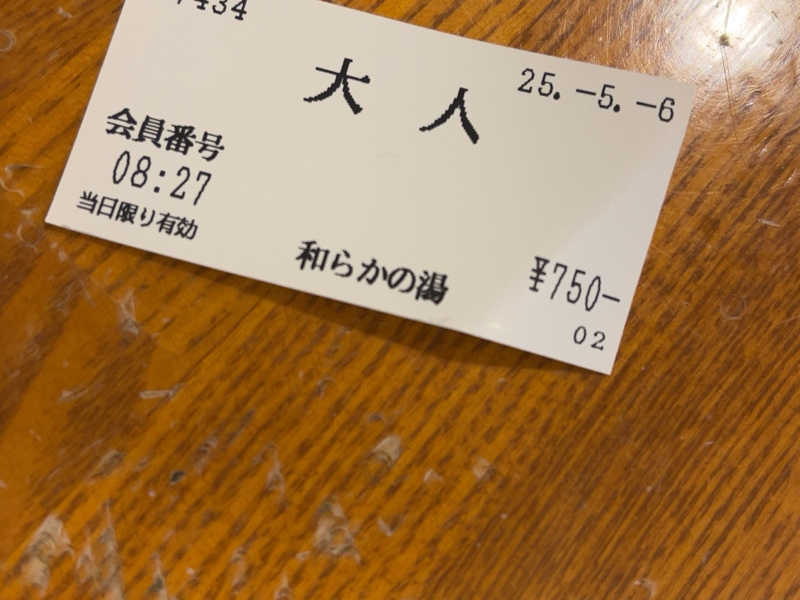 7434
大人
25.-5.-6
会員番号
08:27
当日限り有効
和らかの湯
¥750-
02